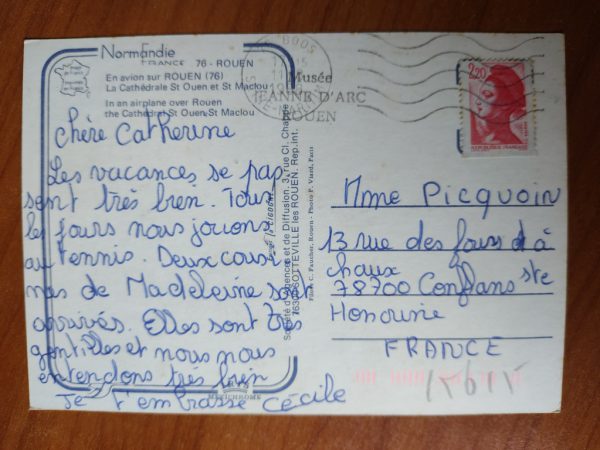 Normandie
FRANCE 76 - ROUEN
En avion sur ROUEN (76)
La Cathédrale St Ouen et St Maclou
In an airplane over Rouen
the Cathedral St Ouen St Maclou
chère Catherine
Les vacances se pas
sont très bien. Tous
les jours nous jouons
au tennis. Deux cousi
nes de Madeleine sont
arrivés. Elles sont très
gentilles et nous nous
entendons très bien
Je t'embrasse Cécile
MEXICHROME
Société d'Agences et de Diffusion, 3, rue Ch. Chappe
76300 SOTTEVILLE les ROUEN. Rep.int.
Rouen - Photo P. Viard, Paris
BOOS
Musée
JEANNE D'ARC
ROUEN
2,20
REPUBLIQUE FRANCAISE
Mme Picquoin
13 rue des fours à
chaux
78700 Conflans ste
Honorine
FRANCE